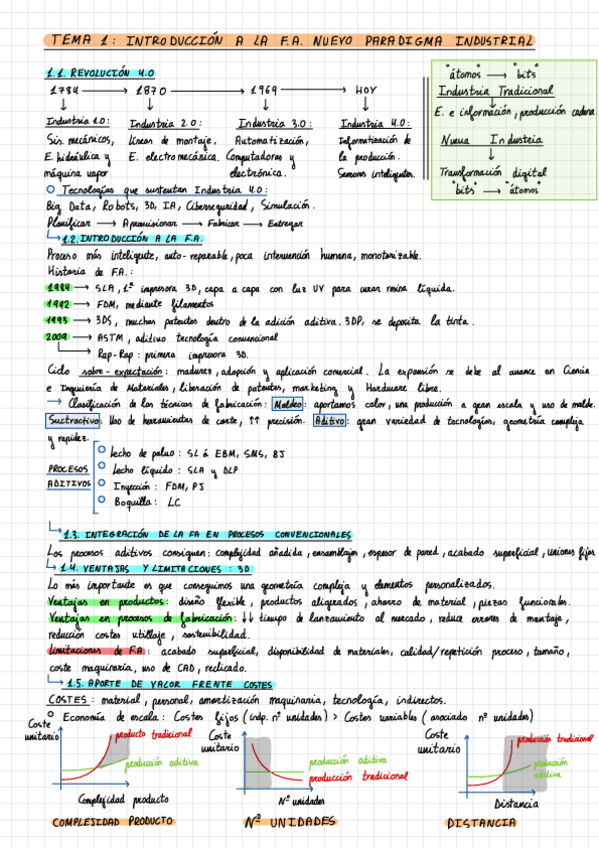 TEMA 1: INTRODUCCIÓN A LA F.A. NUEVO PARADIGMA INDUSTRIAL
1.1. REVOLUCIÓN 4.0
1784 → 1870 → 1969 → HOY
Industria 1.0: Industria 2.0: Industria 3.0: Industria 4.0:
Sis. mecánicos, líneas de montaje, Automatización, Informatización de
E. hidráulica y E. electromecánica. Computadoras y la producción.
máquina vapor electrónica. Sensores inteligentes.
"átomos" → "bits"
Industria Tradicional
E. e información, producción cadena
Nueva Industria
Transformación digital
"bits" → "átomos"
Tecnologías que sustentan Industria 4.0:
Big Data, Robots, 3D, IA, Ciberseguridad, Simulación.
Planificar → Aprovisionar → Fabricar → Entregar
1.2. INTRODUCCIÓN A LA F.A.
Proceso más inteligente, auto-reparable, poca intervención humana, monitorizable.
Historia de F.A.:
1984 → SLA, 1ª impresora 3D, capa a capa con luz UV para curar resina líquida.
1992 → FDM, mediante filamentos
1993 → 3DS, muchas patentes dentro de la adición aditiva. 3DP, se deposita la tinta.
2009 → ASTM, aditivo tecnología convencional
Rap-Rap: primera impresora 3D.
Ciclo sobre-expectación: madurez, adopción y aplicación comercial. La expansión se debe al avance en Ciencia
e Ingeniería de Materiales, liberación de patentes, marketing y Hardware libre.
→ Clasificación de las técnicas de fabricación: Moldeo: aportamos calor, una producción a gran escala y uso de molde.
Sustractivo: Uso de herramientas de corte, ↑↑ precisión. Aditivo: gran variedad de tecnologías, geometría compleja
y rapidez.
PROCESOS ADITIVOS
lecho de polvo: SL ó EBM, SMS, BJ
lecho líquido: SLA y DLP
Inyección: FDM, PJ
Boquilla: LC
1.3. INTEGRACIÓN DE LA FA EN PROCESOS CONVENCIONALES
Los procesos aditivos consiguen: complejidad añadida, ensamblajes, espesor de pared, acabado superficial, uniones fijas
1.4. VENTAJAS Y LIMITACIONES: 3D
Lo más importante es que conseguimos una geometría compleja y elementos personalizados.
Ventajas en productos: diseño flexible, productos aligerados, ahorro de material, piezas funcionales.
Ventajas en procesos de fabricación: ↓↓ tiempo de lanzamiento al mercado, reduce errores de montaje,
reducción costes utillaje, sostenibilidad.
Limitaciones de F.A.: acabado superficial, disponibilidad de materiales, calidad/repetición proceso, tamaño,
coste maquinaria, uso de CAD, reciclado.
1.5. APORTE DE VALOR FRENTE COSTES
COSTES: material, personal, amortización maquinaria, tecnología, indirectos.
Economía de escala: Costes fijos (indp. nº unidades) > Costes variables (asociado nº unidades)
Coste unitario
producto tradicional
producción aditiva
Complejidad producto
COMPLEJIDAD PRODUCTO
Coste unitario
producción aditiva
producción tradicional
Nº unidades
Nº UNIDADES
Coste unitario
producción tradicional
producción aditiva
Distancia
DISTANCIA